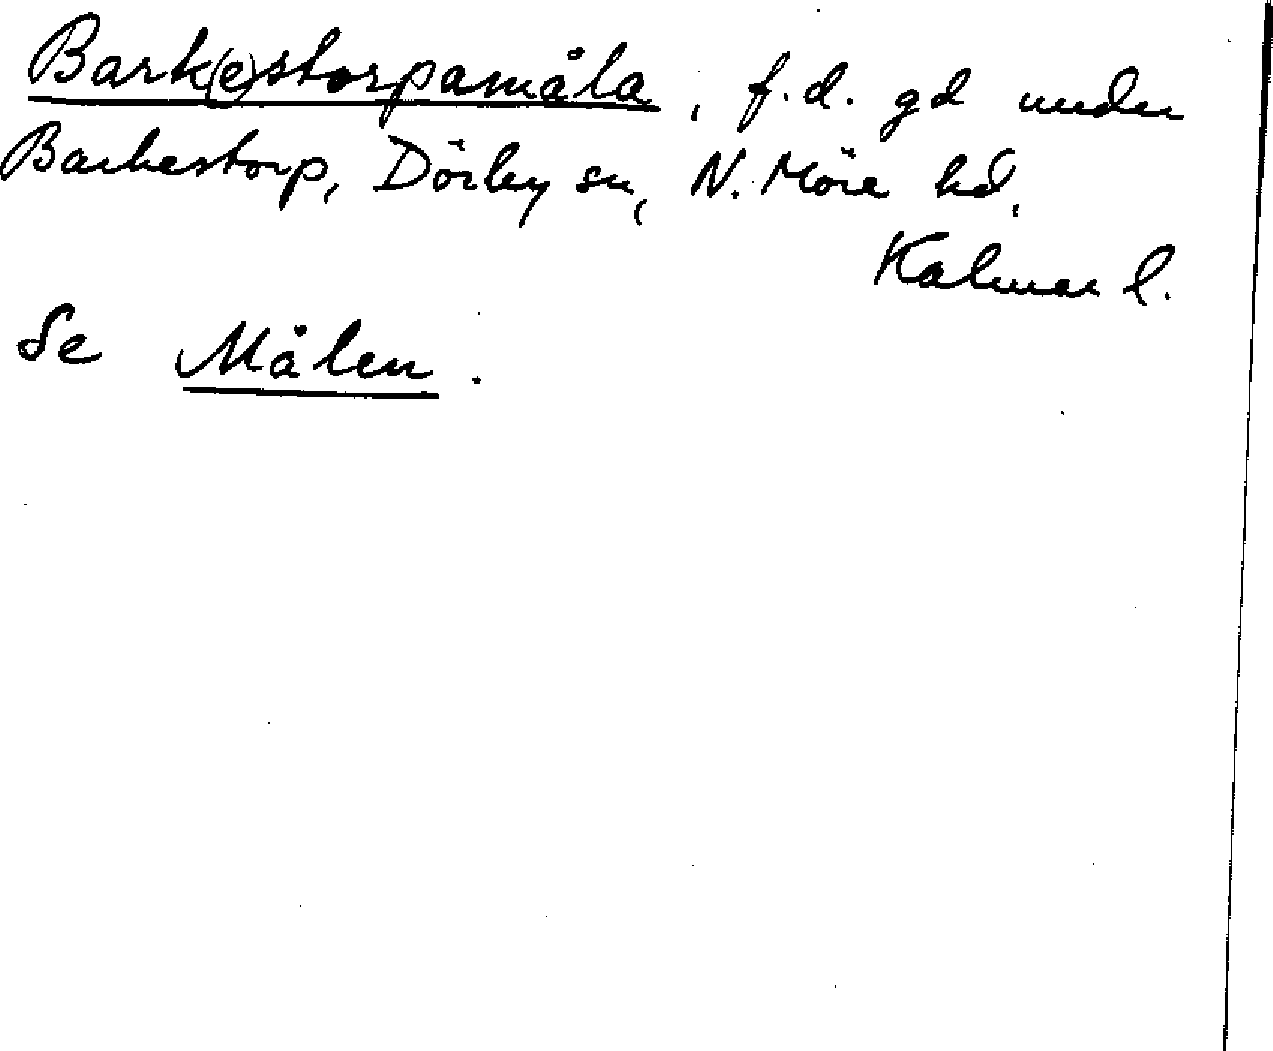 Bark(e)storpamåla, f.d. gd under
Barkestorp, Dörby sn, N. Möre hd,
Kalmar l.
Se Målen.